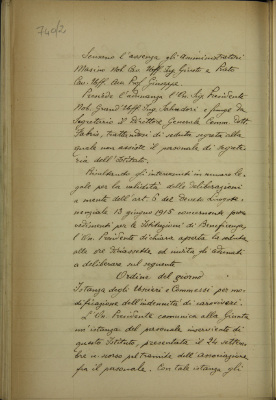 740/2
Scusano l'assenza gli amministratori
Marino Nob. Cav. Uff. Ing. Giusti e Prete
Cav. Uff. Avv. Prof. Giuseppe
Presiede l'adunanza il Vice Presidente
Nob. Grand'Uff. Ing. Salvadori e funge da
Segretario il Direttore Generale Comm. Dott.
Fabris, trattandosi di seduta segreta alla
quale non assiste il personale di segrete-
ria dell'Istituto.
Risultando gli intervenuti in numero le-
gale per la validità delle deliberazioni
a mente dell'art. 5 del Decreto Luogote-
nenziale 13 giugno 1915 concernente prov-
vedimenti per le Istituzioni di Beneficenza,
il Vice Presidente dichiara aperta la seduta
alle ore ed invita gli adunati
a deliberare sul seguente
Ordine del giorno
Istanza degli Uscieri e Commessi per mo-
dificazione dell'indennità di caroviveri.
Il Vice Presidente comunica alla Giunta
un'istanza del personale inserviente di
questo Istituto, presentata il 24 settem-
bre u. scorso pel tramite dell'associazione
fra il personale. Con tale istanza gli